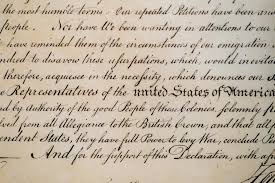 most humble terms Our repeated Petitions have been ans
people. Nor have We been wanting in attentions to our
have reminded them of the circumstances of our emigration
nded to disavow these usurpations, which, would inevita
therefore, acquiesce in the necessity, which denounces our S
e Representatives of the united States of America
nd by Authority of the good People of these Colonies, solemnly
lved from all Allegiance to the British Crown, and that all
pendent States, they have full Power to levy War, conclude Pe
And for the support of this Declaration, with a